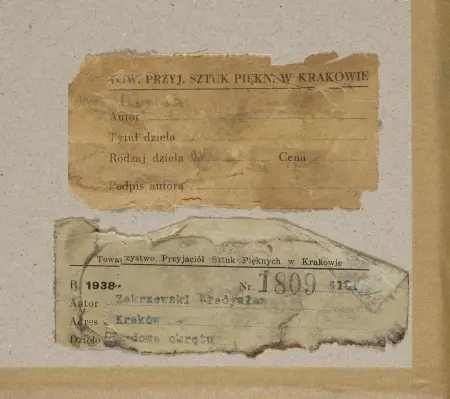 TOW. PRZYJ. SZTUK PIĘKN. W KRAKOWIE
Autor
Tytuł dzieła
Rodzaj dzieła Cena
Podpis autora
Towarzystwo Przyjaciół Sztuk Pięknych w Krakowie
R. 1938. Nr. 1809
Autor Zakrzewski Władysław
Adres Kraków
Dzieło okrętu